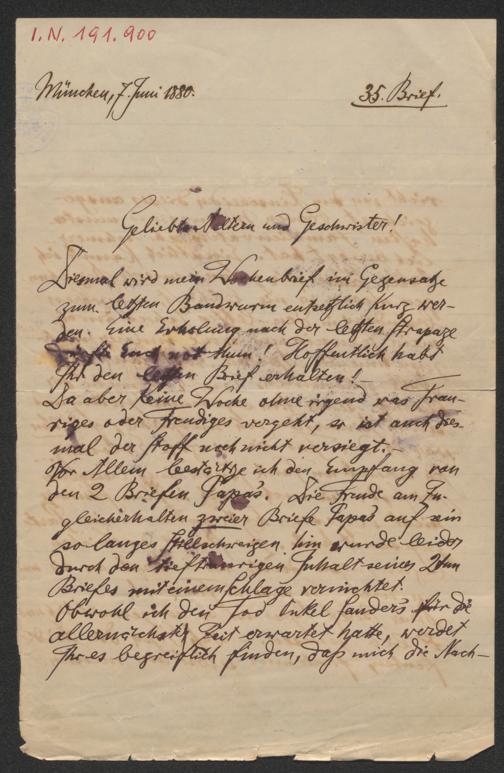 I.N. 191.900
München, 7. Juni 1880.
35. Brief.
Geliebte Aeltern und Geschwister!
Diesmal wird mein Wochenbrief im Gegensatze
zum letzten Bandwurm entsetzlich kurz wer-
den. Eine Erholung nach der letzten Strapaze
dürfte Euch not thun! Hoffentlich habt
Ihr den letzten Brief erhalten! –
Da aber keine Woche ohne irgend was Trau-
riges oder Freudiges vergeht, so ist auch dies-
mal der Stoff noch nicht versiegt. –
Vor Allem bestätige ich den Empfang von
den 2 Briefen Papa's. Die Freude am Zu-
gleicherhalten zweier Briefe Papa's auf ein
so langes Stillschweigen hin wurde leider
durch den tieftraurigen Inhalt seines 2ten
Briefes mit einem Schlage vernichtet.
Obwohl ich den Tod Onkel Sanders für die
allernächste Zeit erwartet hatte, werdet
Ihr es begreiflich finden, daß mich die Nach-